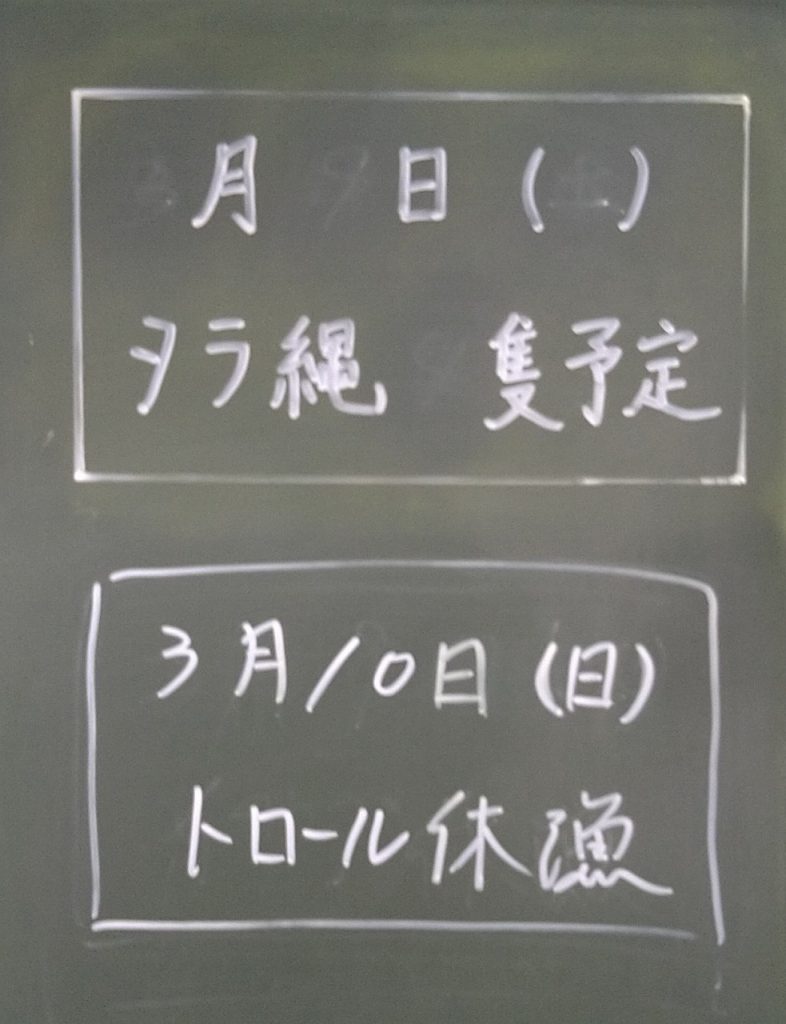 月 日(土)
タラ縄 隻予定
3月10日(日)
トロール休漁